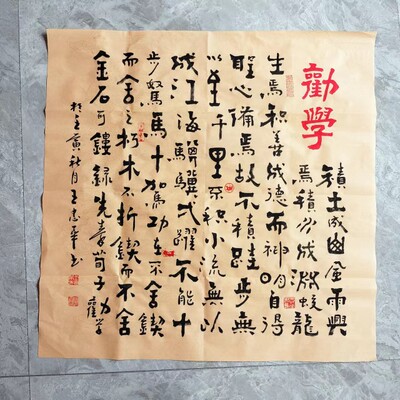 勸學
積土成山風雨興
焉積水成淵蛟龍
生焉积善成德而神明自得
聖心備焉故不積跬步無
以至千里不积小流無以
成江海騏驥弌躍不能十
步駑馬十駕功在不舍鍥
而舍之朽木不折鍥而不舍
金石可鏤錄先秦荀子勸學
於壬寅秋月王志